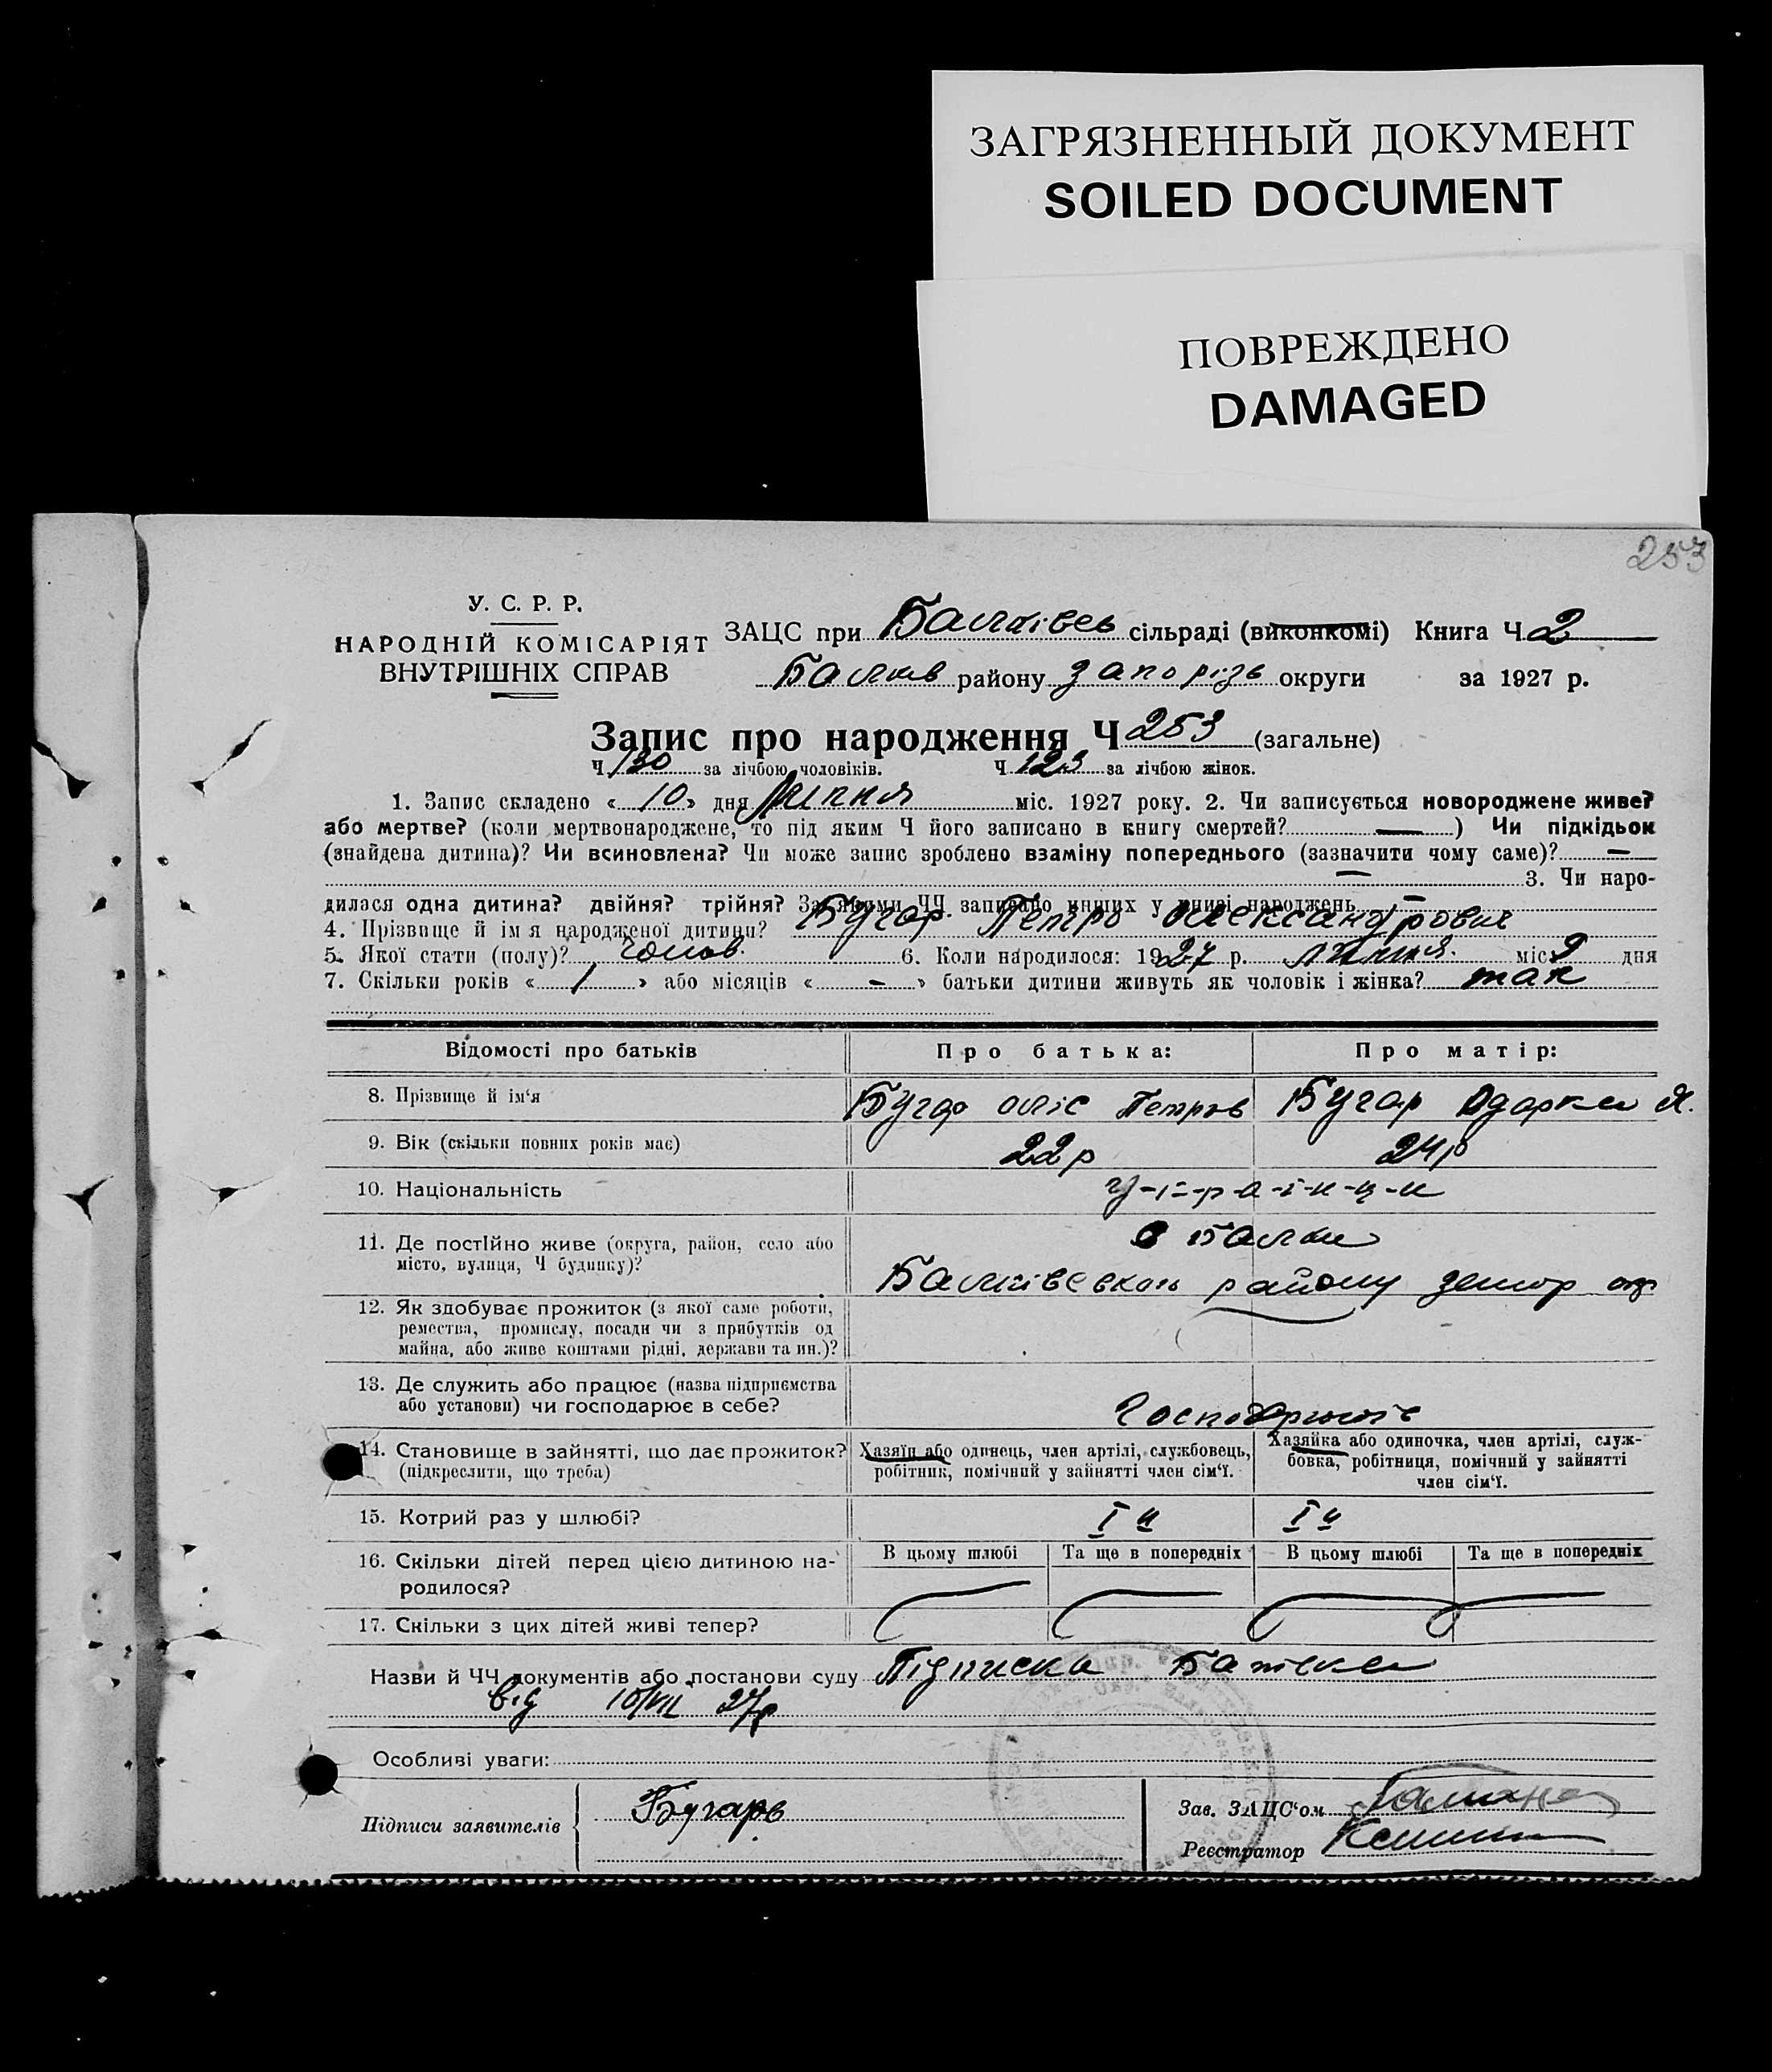 ЗАГРЯЗНЕННЫЙ ДОКУМЕНТ
SOILED DOCUMENT
ПОВРЕЖДЕНО
DAMAGED
253
У. С. Р. Р.
НАРОДНІЙ КОМІСАРІЯТ
ВНУТРІШНІХ СПРАВ
ЗАЦС при Балківсь сільраді (виконкомі) Книга Ч 2
Балків району Запорізь округи за 1927 р.
Запис про народження Ч 253 (загальне)
Ч 130 за лічбою чоловіків. Ч 123 за лічбою жінок.
1. Запис складено « 10 » дня Липня міс. 1927 року. 2. Чи записується новороджене живе?
або мертве? (коли мертвонароджене, то під яким Ч його записано в книгу смертей? — ) Чи підкідьок
(знайдена дитина)? Чи всиновлена? Чи може запис зроблено взаміну попереднього (зазначити чому саме)? —
— 3. Чи наро-
дилася одна дитина? двійня? трійня? За якими ЧЧ записано инших у книзі народжень —
4. Прізвище й імя народженої дитини? Бугар Петро Олександрович
5. Якої стати (полу)? Чолов. 6. Коли народилося: 1927 р. липня міс. 9 дня
7. Скільки років « 1 » або місяців « - » батьки дитини живуть як чоловік і жінка? так
Відомості про батьків Про батька: Про матір:
8. Прізвище й ім'я Бугар Петров Бугар Одарка Я.
9. Вік (скільки повних років має) 22 р 24 р
10. Національність У-к-р-а-ї-н-ц-и
11. Де постійно живе (округа, район, село або
місто, вулиця, Ч будинку)?
с Балки
Балківськ району
12. Як здобуває прожиток (з якої саме роботи,
ремества, промислу, посади чи з прибутків од
майна, або живе коштами рідні, держави та ин.)?
13. Де служить або працює (назва підприємства
або установи) чи господарює в себе?
14. Становище в зайнятті, що дає прожиток?
(підкреслити, що треба)
Хазяїн або одинець, член артілі, службовець,
робітник, помічний у зайнятті член сім'ї.
Хазяйка або одиночка, член артілі, служ-
бовка, робітниця, помічний у зайнятті
член сім'ї.
15. Котрий раз у шлюбі? I й I й
16. Скільки дітей перед цією дитиною на-
родилося?
В цьому шлюбі Та ще в попередніх В цьому шлюбі Та ще в попередніх
17. Скільки з цих дітей живі тепер?
Назви й ЧЧ документів або постанови суду Підписка Батька
від 10/VII 27р
Особливі уваги:
Підписи заявителів Бугарь
Зав. ЗАЦС'ом
Реєстратор